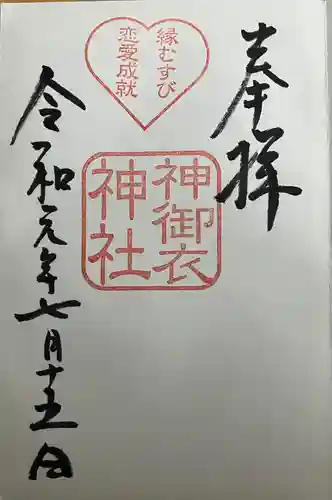 奉拝
縁むすび
恋愛成就
神御衣
神社
令和元年七月十五日